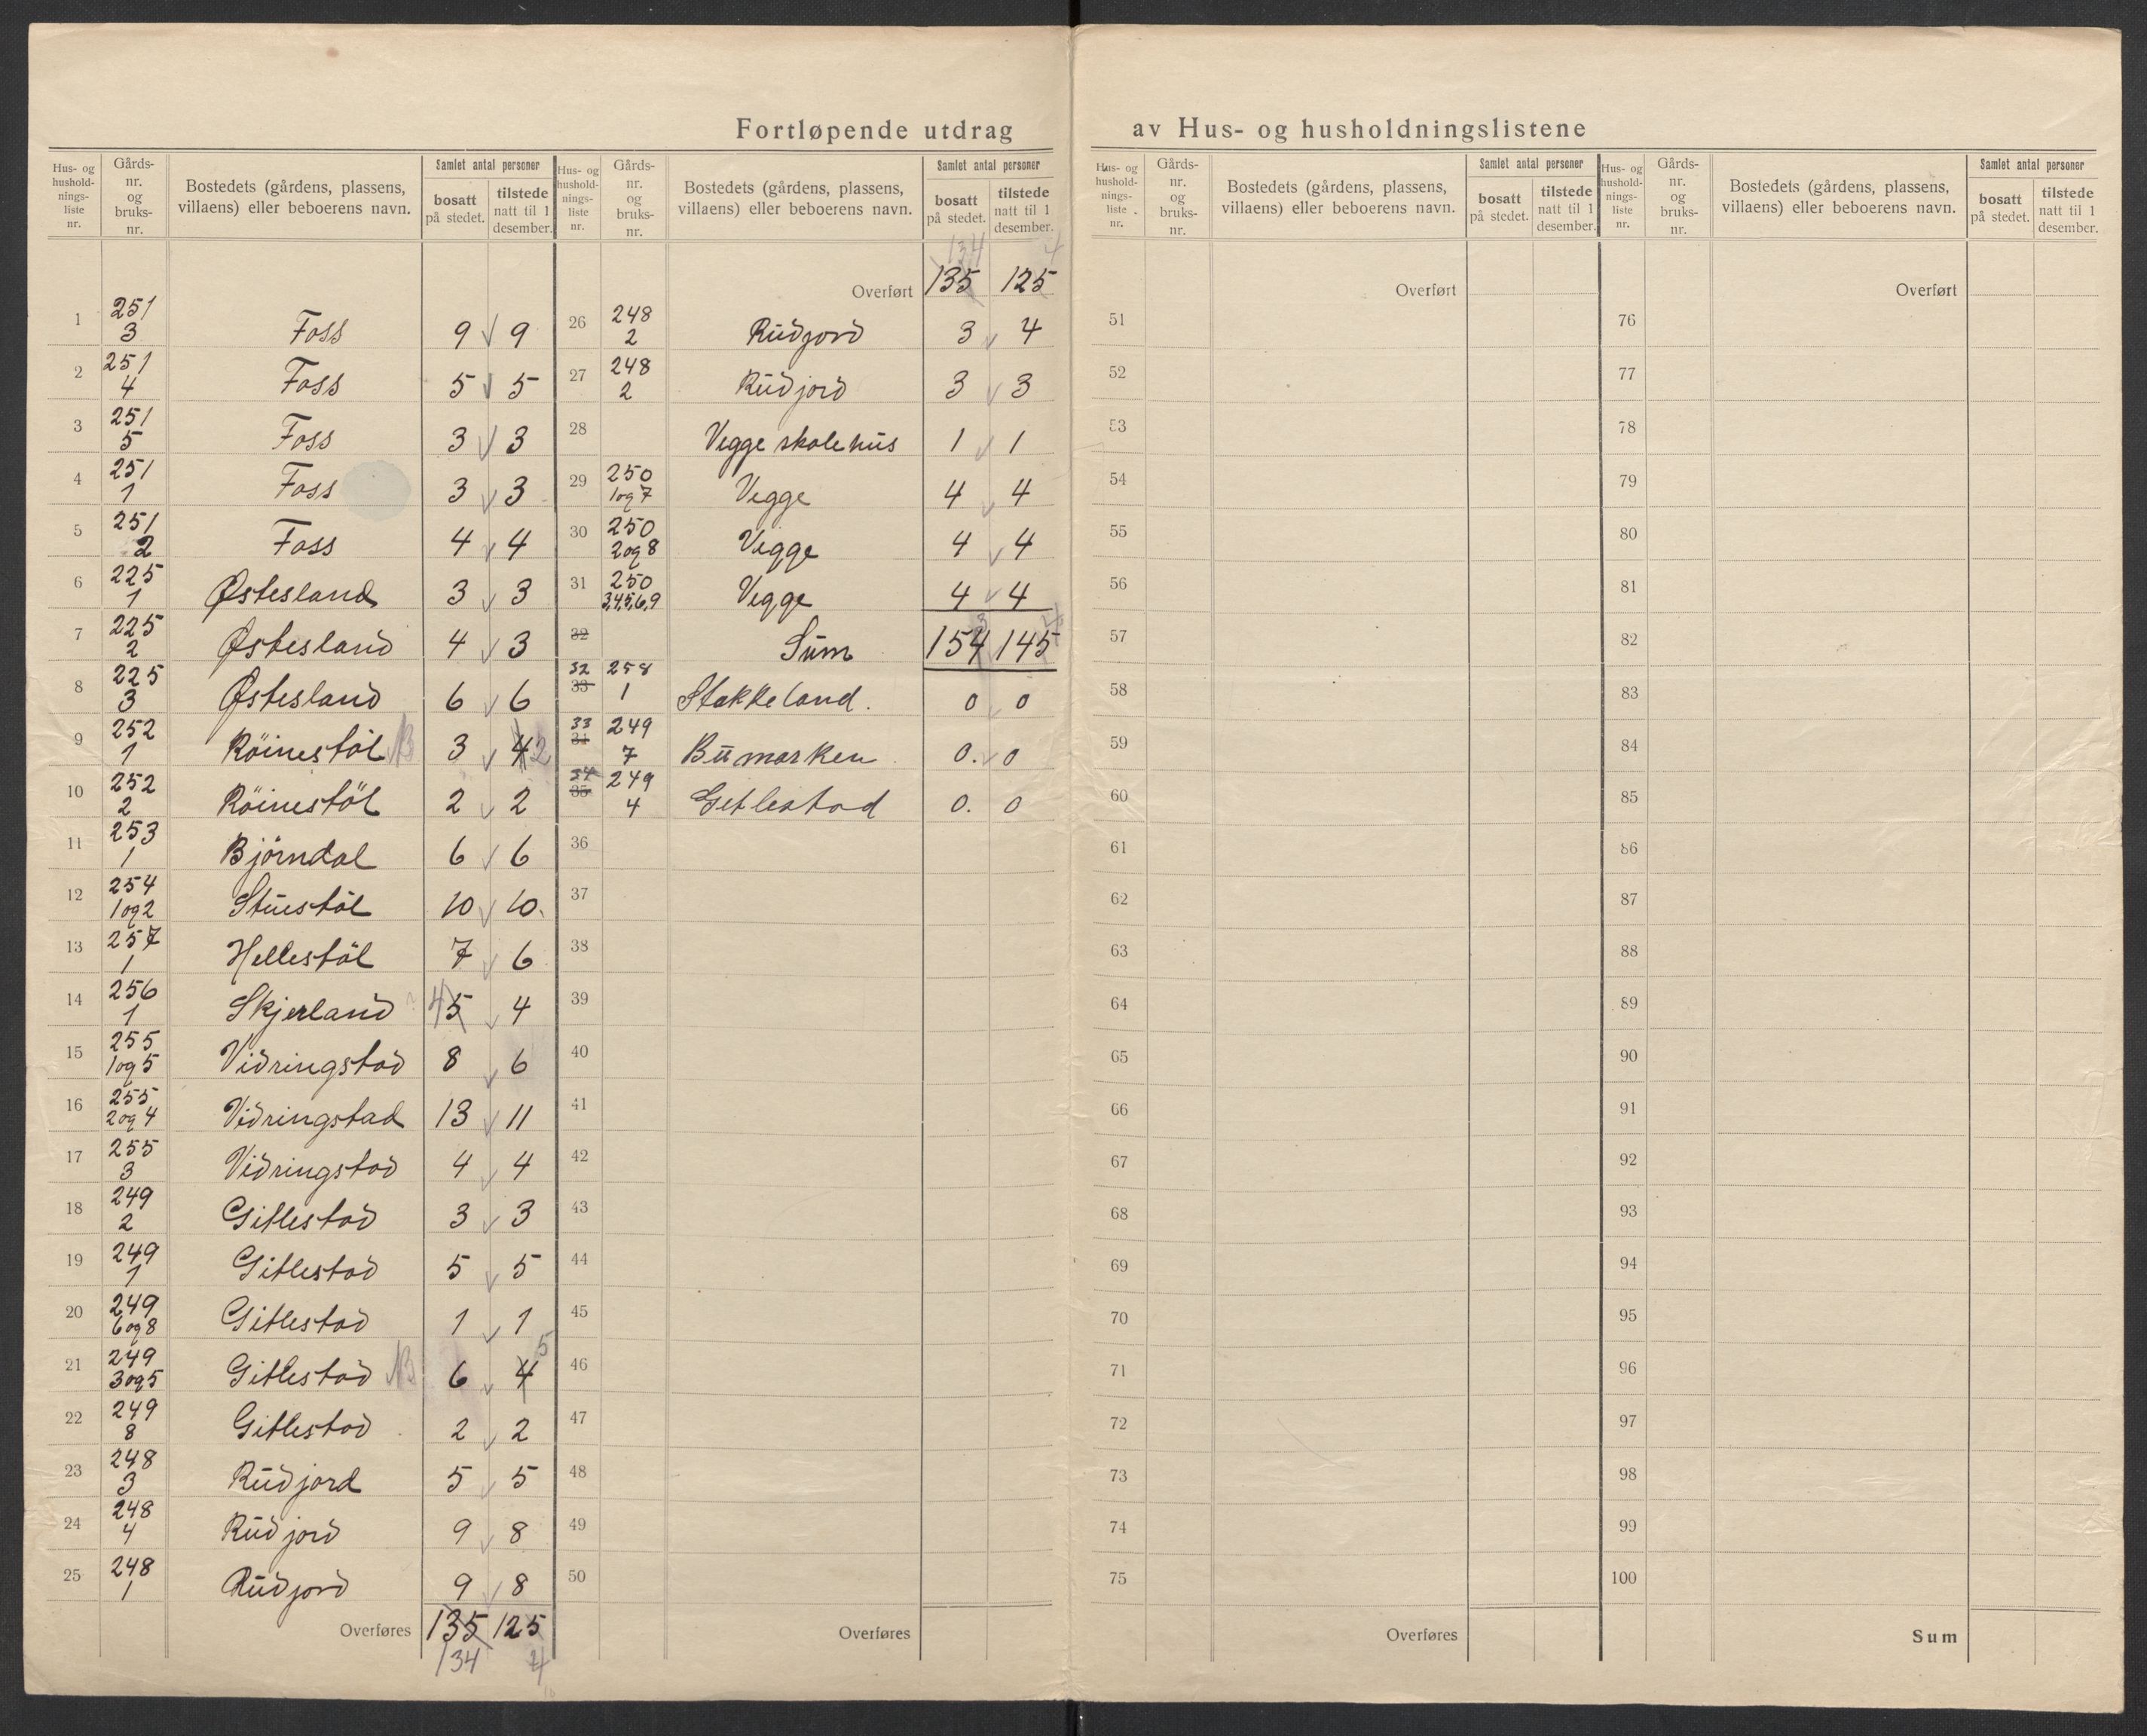 Fortløpende utdrag av Hus- og husholdningslistene
Hus- og hushold-nings-liste nr. Gårds-nr. og bruks-nr. Bostedets (gårdens, plassens, villaens) eller beboerens navn. Samlet antal personer bosatt på stedet. tilstede natt til 1 desember.
1 251 3 Foss 9 9
2 251 4 Foss 5 5
3 251 5 Foss 3 3
4 251 1 Foss 3 3
5 251 2 Foss 4 4
6 225 1 Østesland 3 3
7 225 2 Østesland 4 3
8 225 3 Østesland 6 6
9 252 1 Röinestöl NB 3 4 2
10 252 2 Röinestöl 2 2
11 253 1 Björndal 6 6
12 254 1og2 Stüestöl 10 10.
13 257 1 Hellestöl 7 6
14 256 1 Skjerland 4 5 4
15 255 1og5 Vidringstad 8 6
16 255 2og4 Vidringstad 13 11
17 255 3 Vidringstad 4 4
18 249 2 Gitlestad 3 3
19 249 1 Gitlestad 5 5
20 249 6og8 Gitlestad 1 1
21 249 3og5 Gitlestad NB 6 4 5
22 249 8 Gitlestad 2 2
23 248 3 Rüdjord 5 5
24 248 4 Rüdjord 9 8
25 248 1 Rüdjord 9 8
Overføres 135 125
134 4
Hus- og hushold-nings-liste nr. Gårds-nr. og bruks-nr. Bostedets (gårdens, plassens, villaens) eller beboerens navn. Samlet antal personer bosatt på stedet. tilstede natt til 1 desember.
134 4
Overført 135 125
26 248 2 Rüdjord 3 4
27 248 2 Rüdjord 3 3
28 Vegge skolehüs 1 1
29 250 1og7 Vegge 4 4
30 250 2og8 Vegge 4 4
31 250 3,4,5,6,9 Vegge 4 4
32 Süm 154 145
32 33 258 1 Stakkeland. 0 0
33 34 249 7 Bümarken 0. 0
34 35 249 4 Getlestad 0. 0
36
37
38
39
40
41
42
43
44
45
46
47
48
49
50
Overføres
Hus- og hushold-nings-liste nr. Gårds-nr. og bruks-nr. Bostedets (gårdens, plassens, villaens) eller beboerens navn. Samlet antal personer bosatt på stedet. tilstede natt til 1 desember.
Overført
51
52
53
54
55
56
57
58
59
60
61
62
63
64
65
66
67
68
69
70
71
72
73
74
75
Overføres
Hus- og hushold-nings-liste nr. Gårds-nr. og bruks-nr. Bostedets (gårdens, plassens, villaens) eller beboerens navn. Samlet antal personer bosatt på stedet. tilstede natt til 1 desember.
Overført
76
77
78
79
80
81
82
83
84
85
86
87
88
89
90
91
92
93
94
95
96
97
98
99
100
Sum